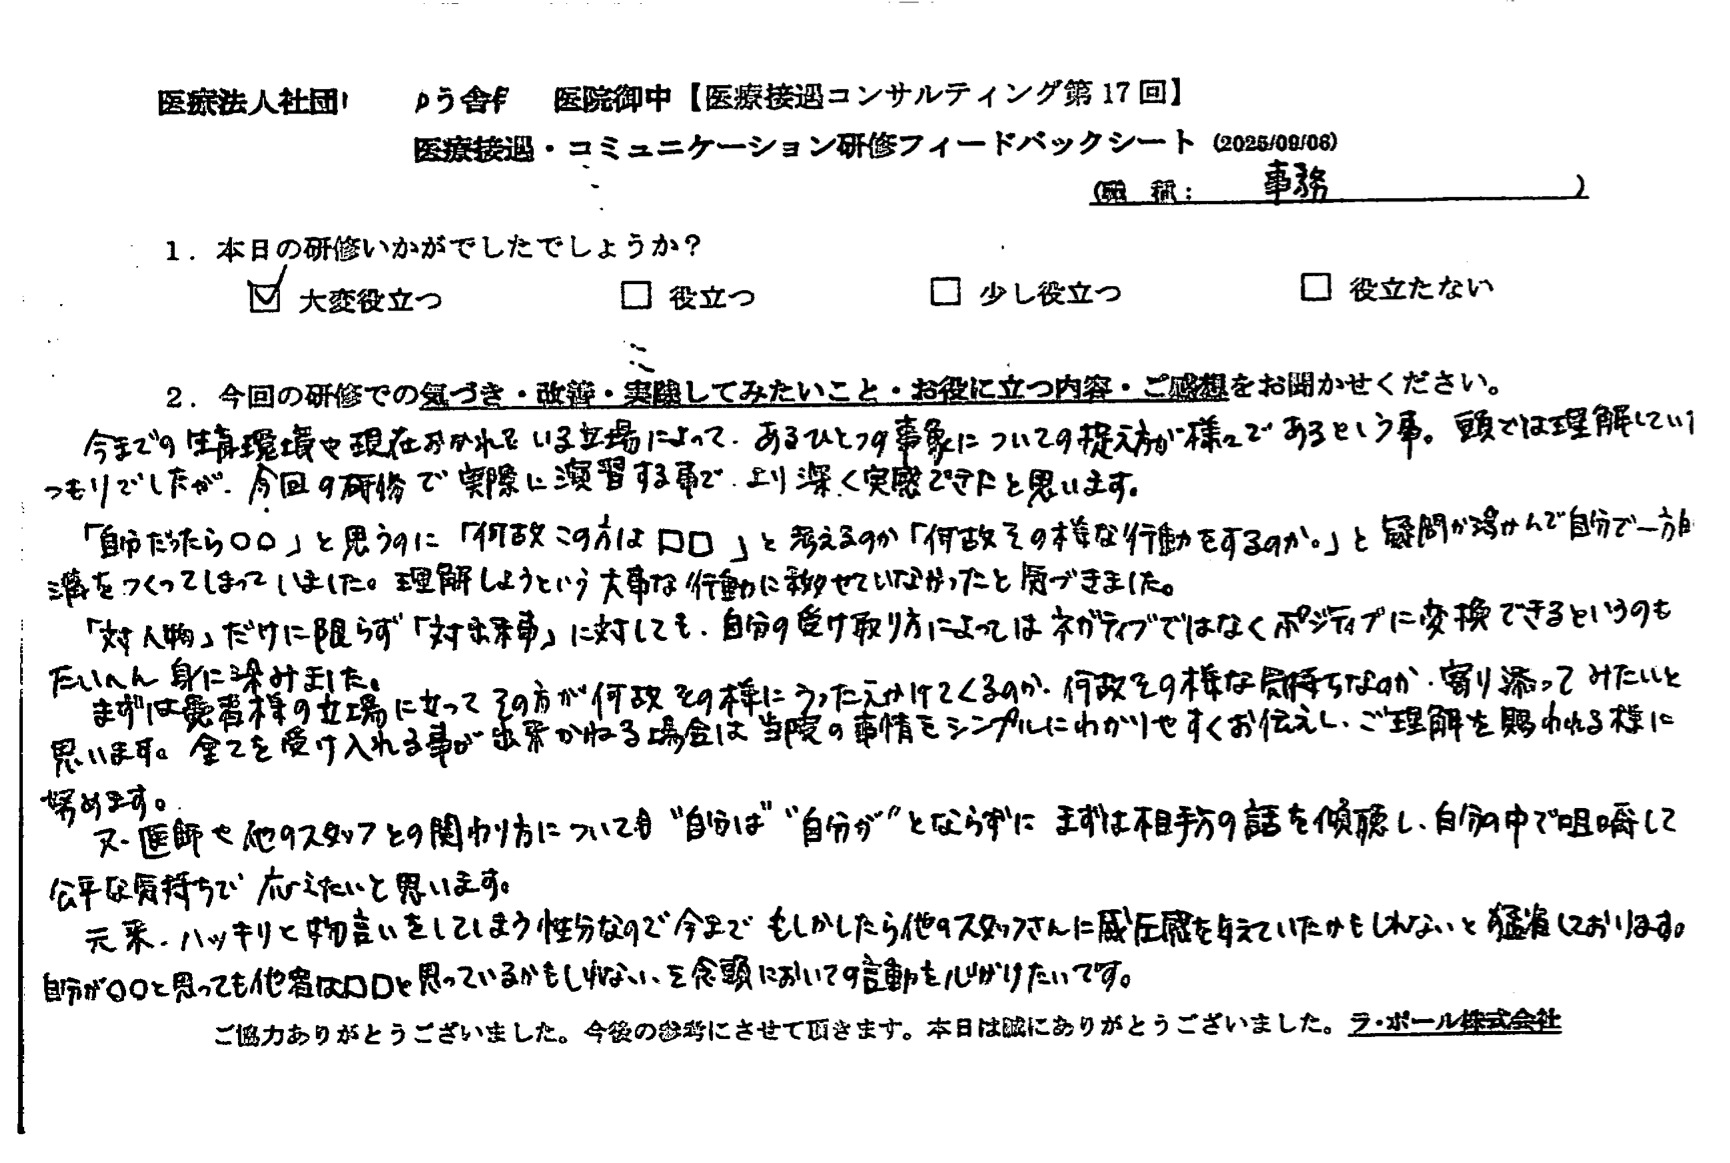 医療法人社団 医院御中【医療接遇コンサルティング第17回】
医療接遇・コミュニケーション研修フィードバックシート (2025/09/06)
(職 種: 事務 )
1. 本日の研修いかがでしたでしょうか?
☑ 大変役立つ □ 役立つ □ 少し役立つ □ 役立たない
2. 今回の研修での気づき・改善・実践してみたいこと・お役に立つ内容・ご感想をお聞かせください。
今までの生育環境や現在おかれている立場によって、あるひとつの事象についての捉え方が様々であるという事。頭では理解してい
つもりでしたが、今回の研修で実際に演習する事で、より深く実感できたと思います。
「自分だったら○○」と思うのに「何故この方は□□」と考えるのか「何故その様な行動をするのか。」と疑問が湧かんで自分で一方的
溝をつくってしまっていました。理解しようという大事な行動に移せていなかったと気づきました。
「対人物」だけに限らず「対出来事」に対しても、自分の受け取り方によってはネガティブではなくポジティブに変換できるというのも
たいへん身に染みました。
まずは患者様の立場に立ってその方が何故その様にうったえかけてくるのか、何故その様な気持ちなのか、寄り添ってみたいと
思います。全てを受け入れる事が出来かねる場合は当院の事情をシンプルにわかりやすくお伝えし、ご理解を賜われる様に
努めます。
又、医師や他のスタッフとの関わり方についても"自分は""自分が"とならずにまずは相手方の話を傾聴し、自分の中で咀嚼して
公平な気持ちで応えたいと思います。
元来、ハッキリと物言いをしてしまう性分なので今までもしかしたら他のスタッフさんに威圧感を与えていたかもしれないと猛省しております。
自分が○○と思っても他者は□□と思っているかもしれない、を念頭においての言動を心がけたいです。
ご協力ありがとうございました。今後の参考にさせて頂きます。本日は誠にありがとうございました。ラ・ポール株式会社